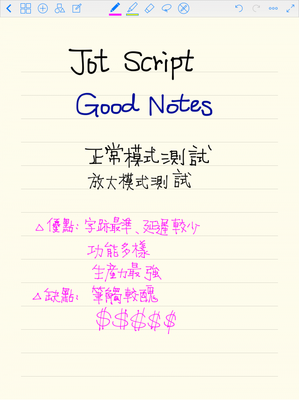 Jot Script
Good Notes
正常模式測試
放大模式測試
△優點：字跡最準、延遲較少
功能多樣
生產力最強
△缺點：筆觸較醜
$$$$$